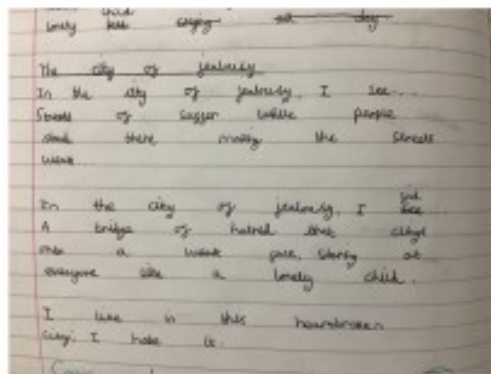 child
lonely
The city of jealousy
In the city of jealousy, I see...
Streets of suffer while people
there making the streets
weak...
In the city of jealousy, I see
A bridge of hatred that clings
onto a weak pole, staring at
everyone like a lonely child.
I live in this heartbroken
city, I hate it.